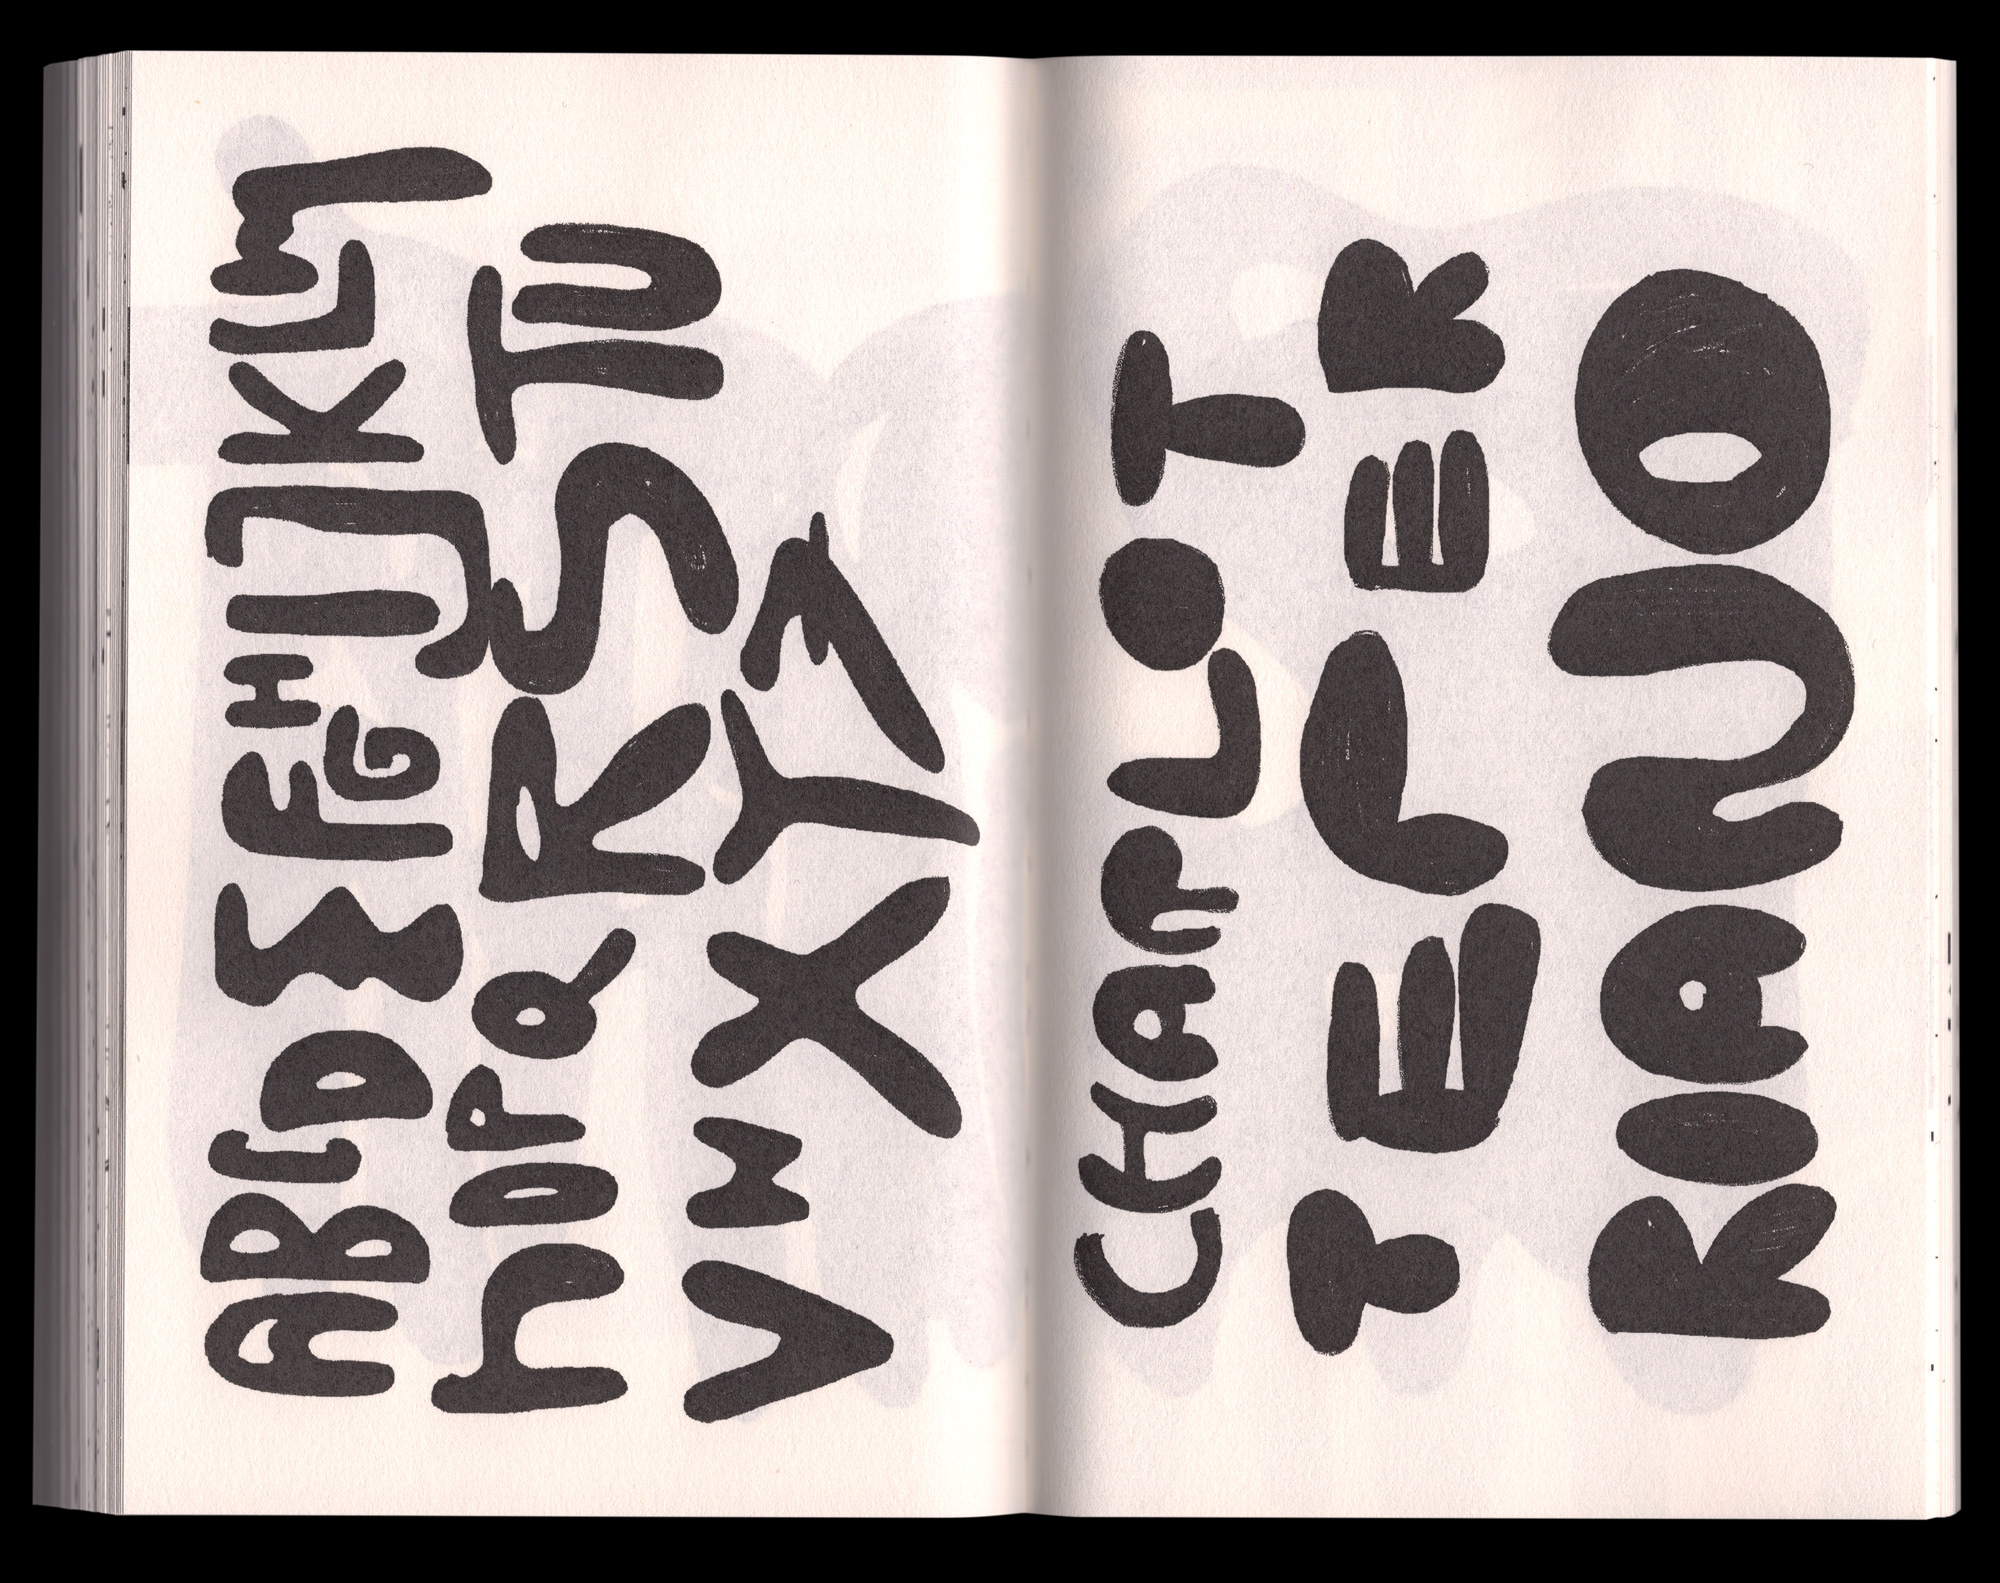 ABCDEFGHIJKLM
NOPQRSTU
VWXYZ
CHARLOT
TEPER
RIAND